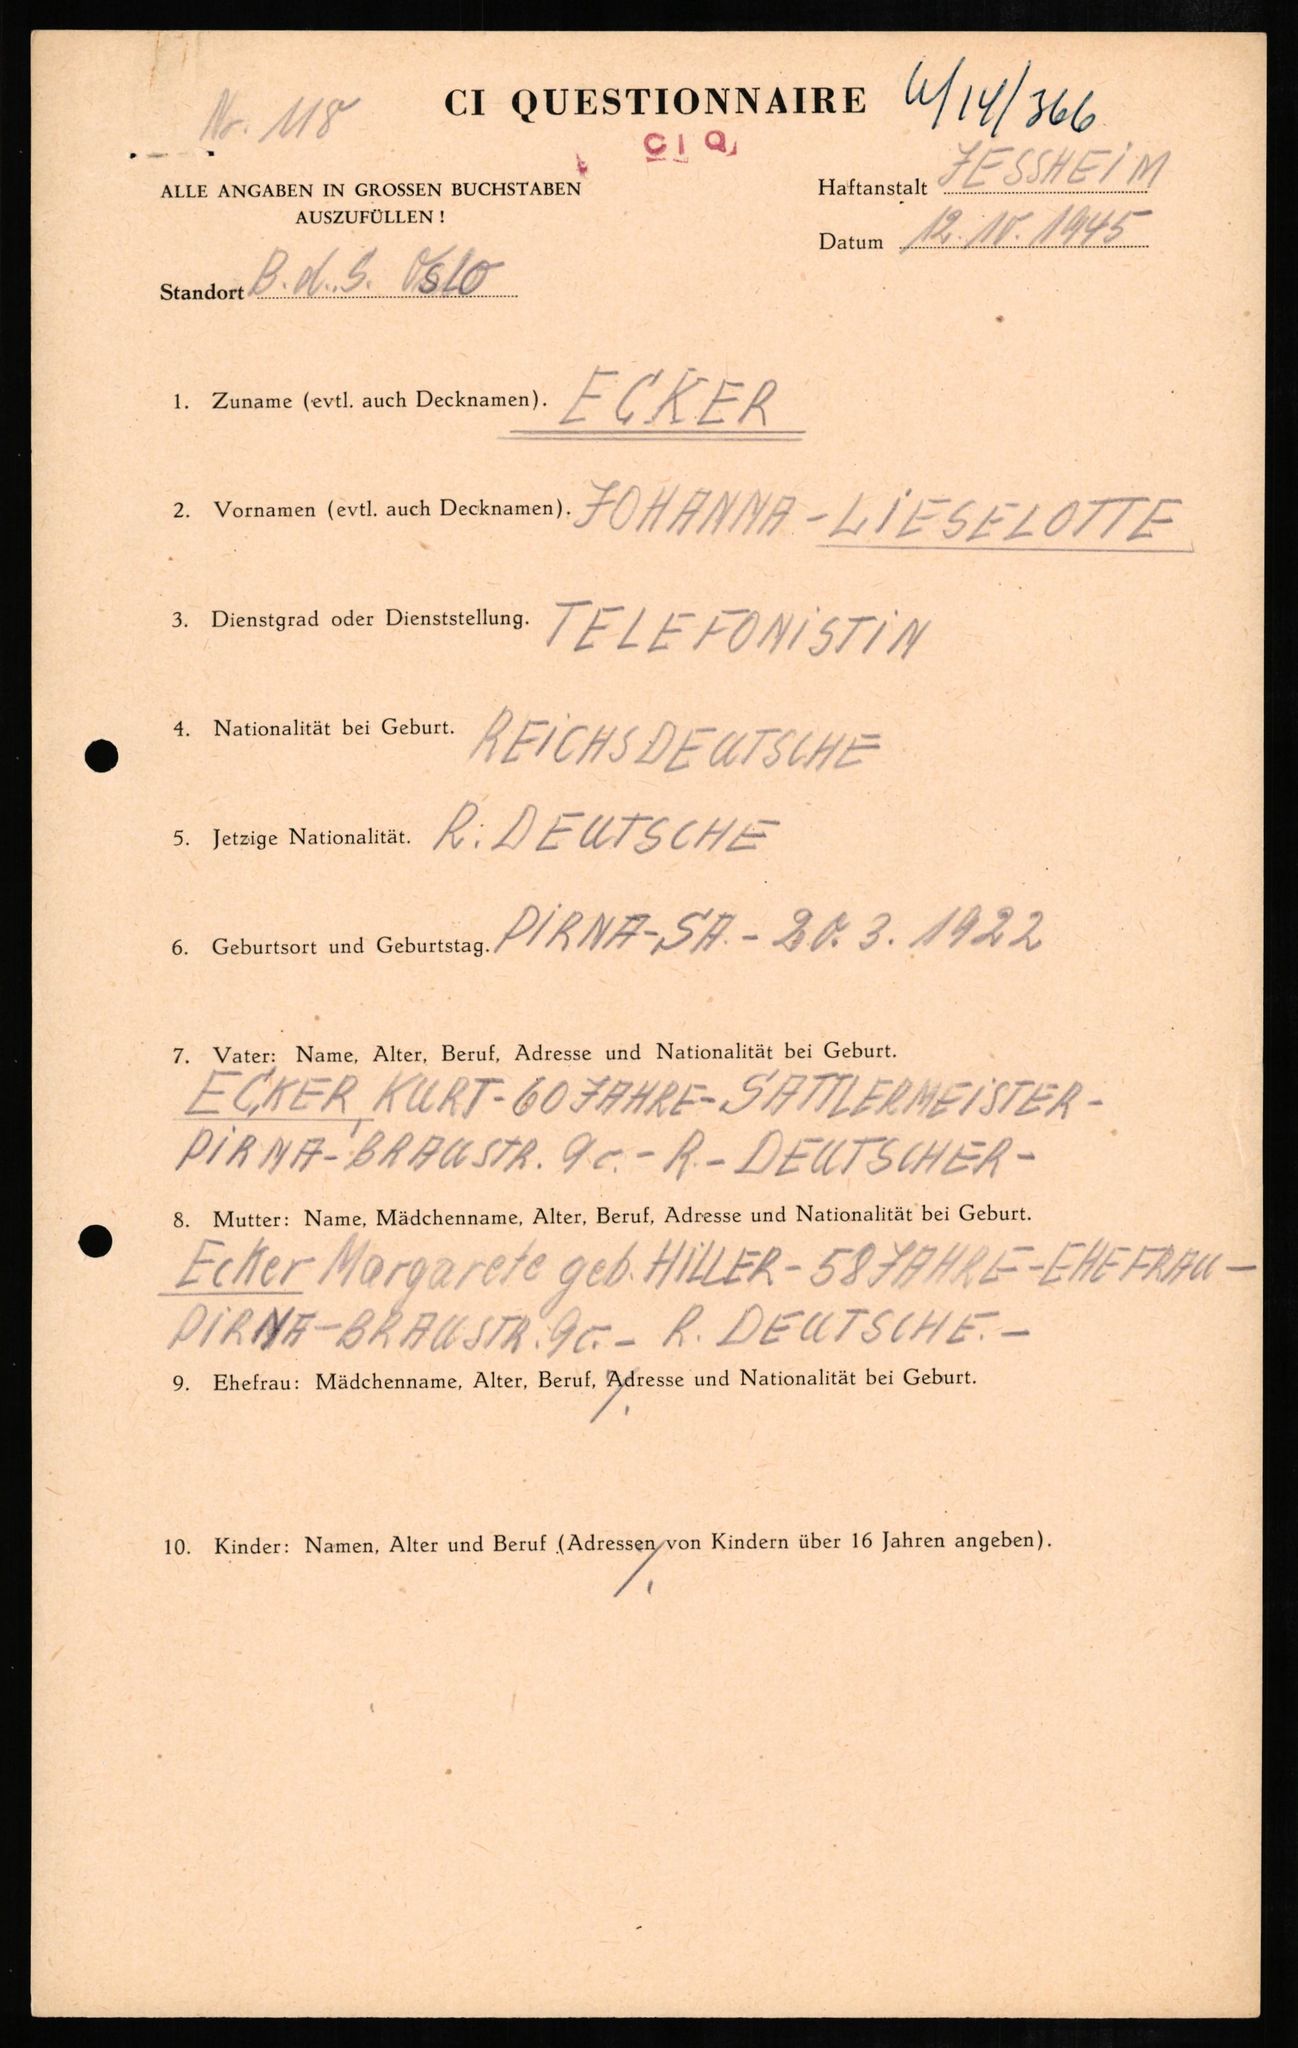 Nr. 118
CI QUESTIONNAIRE
C I Q
ALLE ANGABEN IN GROSSEN BUCHSTABEN
AUSZUFÜLLEN !
Haftanstalt JESSHEIM
Datum 12. IV. 1945
Standort B. d. S. Oslo
1. Zuname (evtl. auch Decknamen). ECKER
2. Vornamen (evtl. auch Decknamen). JOHANNA - LIESELOTTE
3. Dienstgrad oder Dienststellung. TELEFONISTIN
4. Nationalität bei Geburt. REICHSDEUTSCHE
5. Jetzige Nationalität. R. DEUTSCHE
6. Geburtsort und Geburtstag. PIRNA-SA. - 20. 3. 1922
7. Vater: Name, Alter, Beruf, Adresse und Nationalität bei Geburt.
ECKER, KURT - 60 JAHRE - SATTLERMEISTER -
PIRNA - BRAUSTR. 9c. - R. - DEUTSCHER -
8. Mutter: Name, Mädchenname, Alter, Beruf, Adresse und Nationalität bei Geburt.
Ecker Margarete geb. HILLER - 58 JAHRE - EHEFRAU -
PIRNA - BRAUSTR. 9c. - R. DEUTSCHE. -
9. Ehefrau: Mädchenname, Alter, Beruf, Adresse und Nationalität bei Geburt.
/.
10. Kinder: Namen, Alter und Beruf (Adressen von Kindern über 16 Jahren angeben).
/.